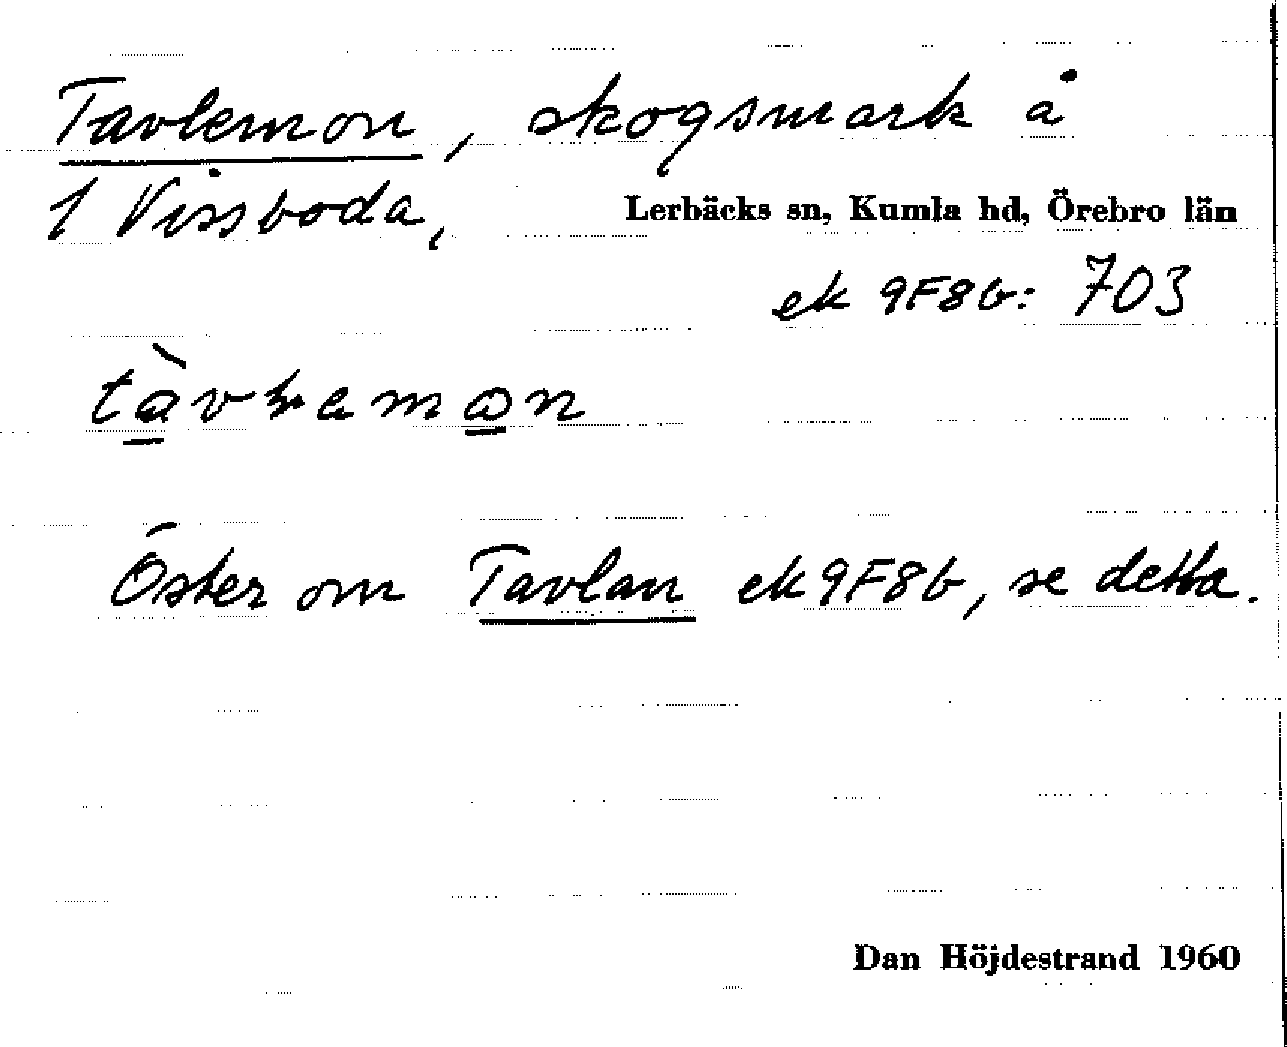 Tavlemon, skogsmark å
1 Vissboda,
Lerbäcks sn, Kumla hd, Örebro län
ek 9F8b: 703
tàvɫamon
Öster om Tavlan ek 9F8b, se detta.
Dan Höjdestrand 1960